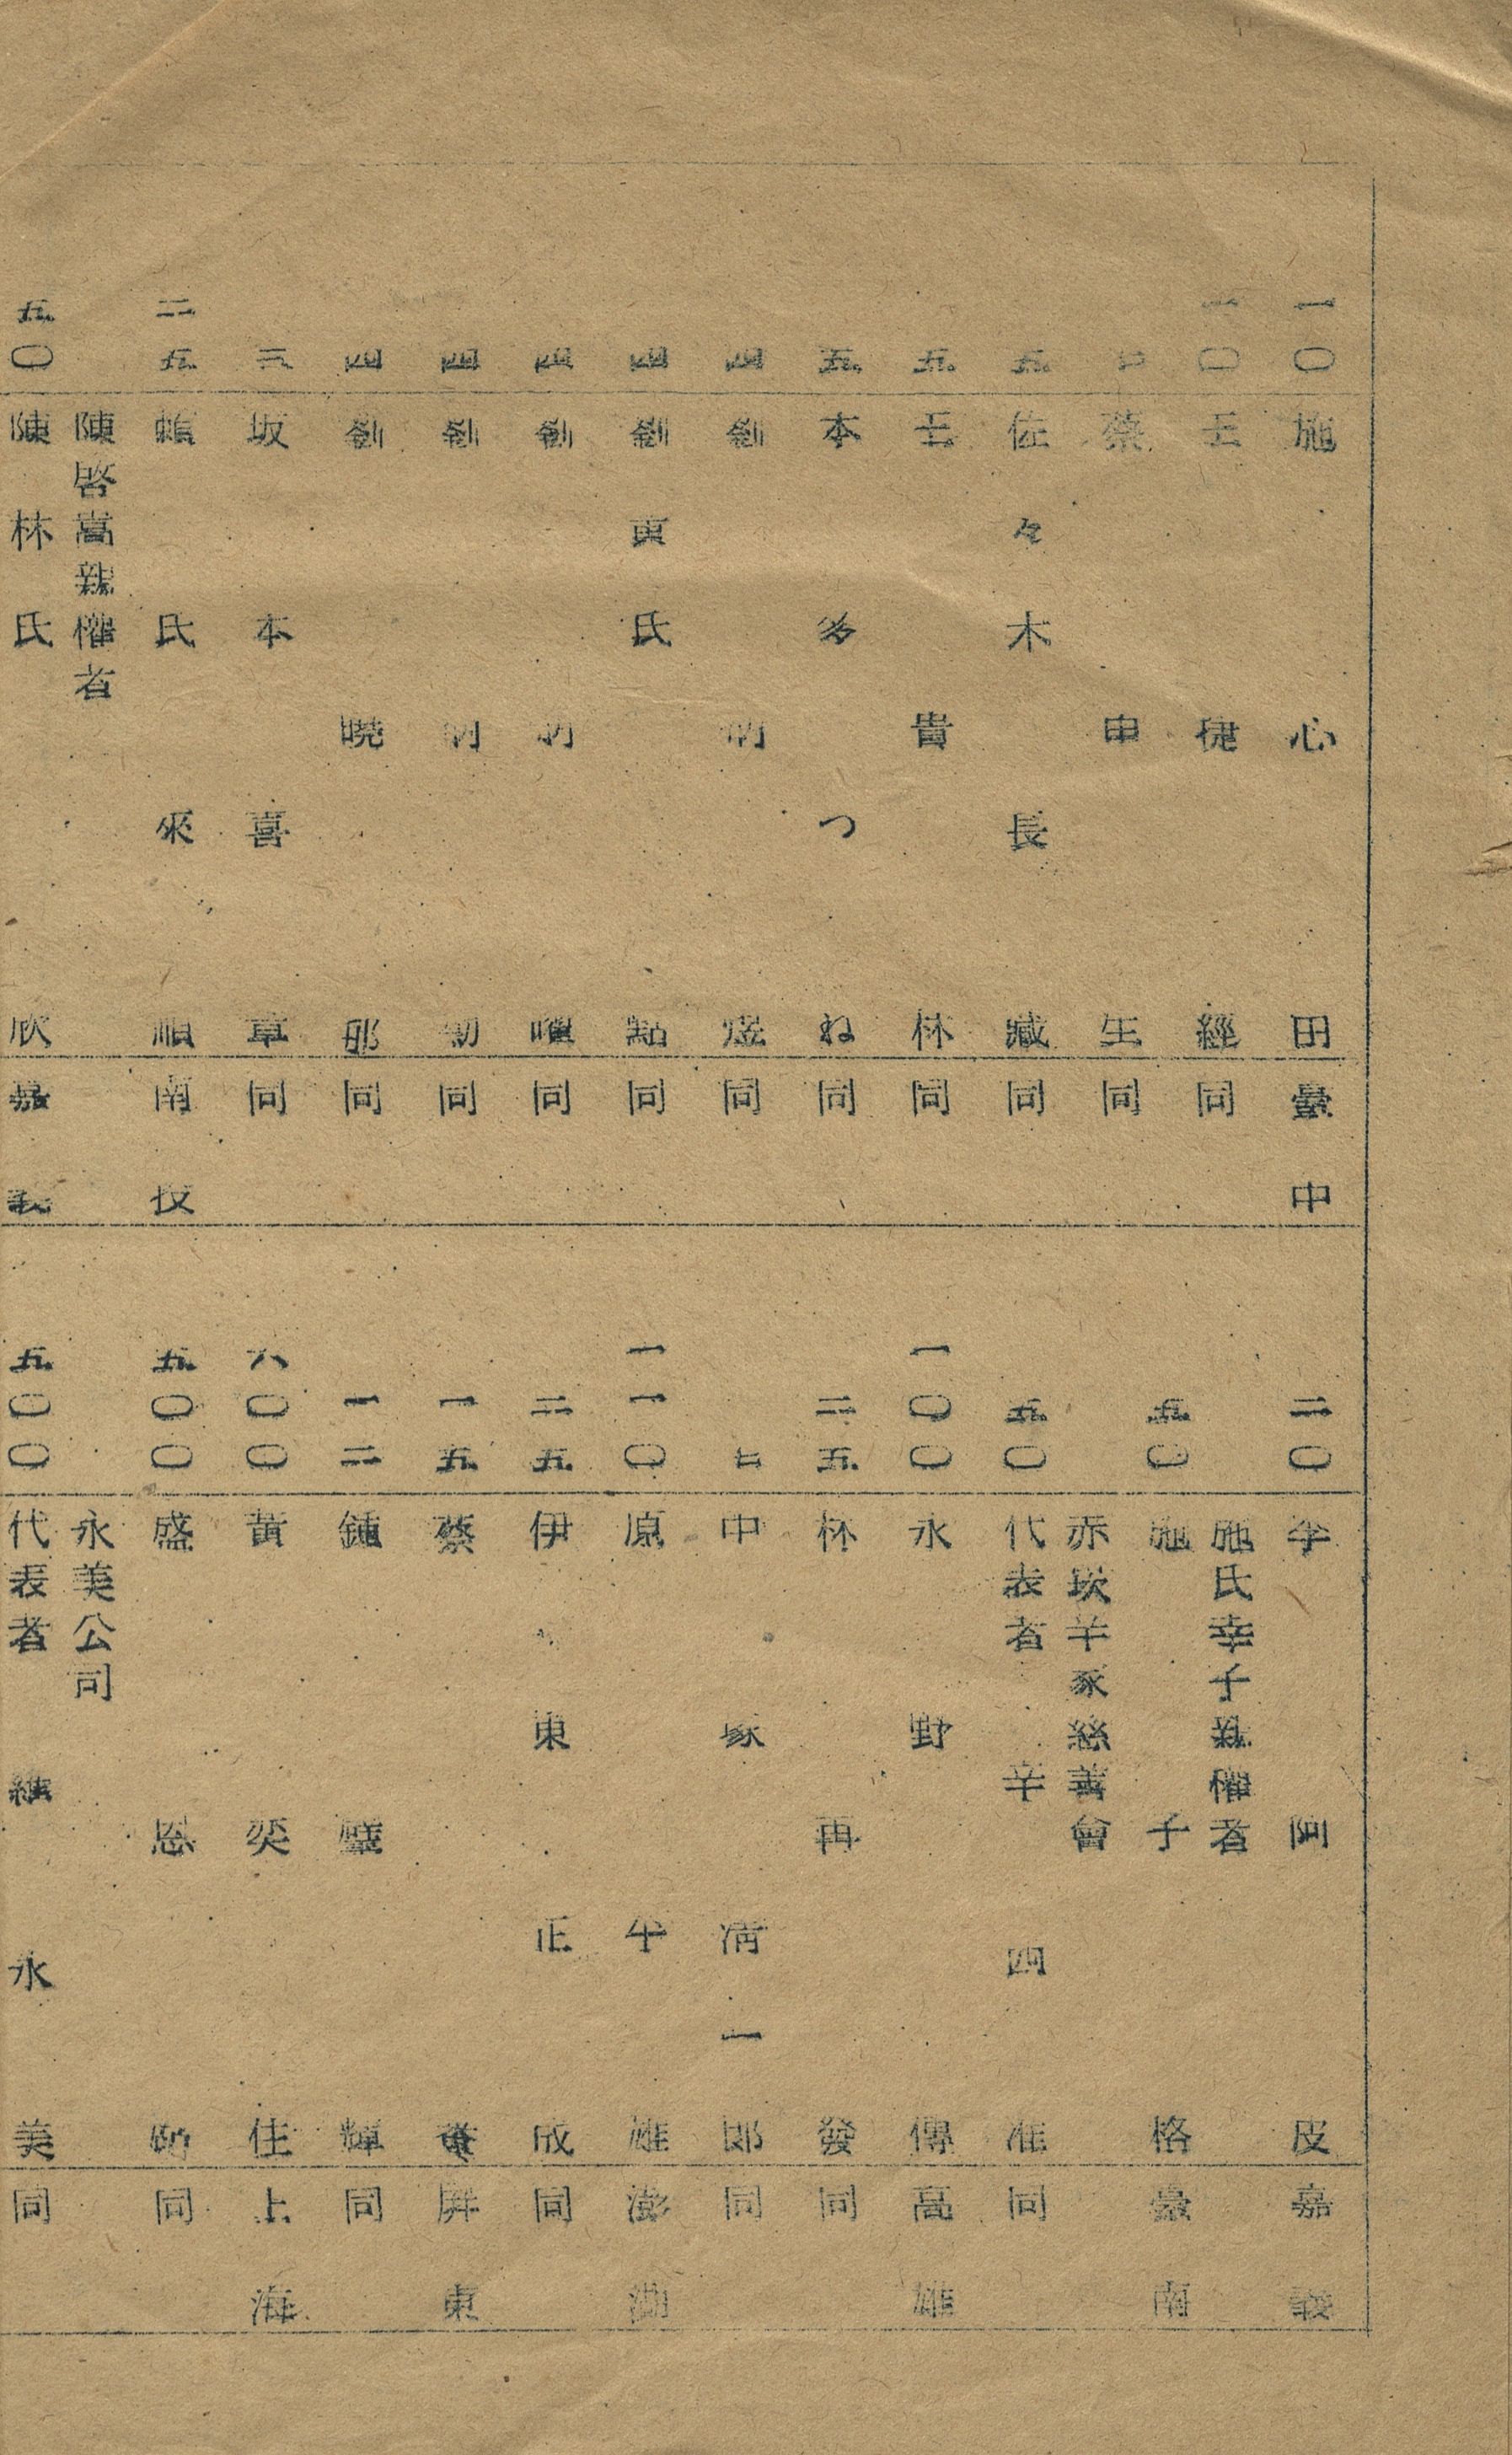 一〇 施心田 臺中
一〇 王捷經 同
蔡申生 同
五 佐々木長藏 同
五 王貴林 同
五 本多つね 同
四 劉炳煜 同
四 劉黄氏點 同
四 劉曜 同
四 劉 同
四 劉曉邨 同
三 坂本喜章 同
二五 賴氏來順 南投
陳啓嵩親權者
五〇 陳林氏欣 嘉義
二〇 李阿皮 嘉義
施氏幸子親權者
五〇 施子格 臺南
赤崁羊豕絲善會
五〇 代表者 辛四准 同
一〇〇 永野傳 高雄
二五 林再發 同
七 中塚清一郎 同
一一〇 原午雄 澎湖
二五 伊東正成 同
一五 蔡 屏東
一二 鍾璧輝 同
六〇〇 黃奕住 上海
五〇〇 盛恩頤 同
永美公司
五〇〇 代表者 維永美 同